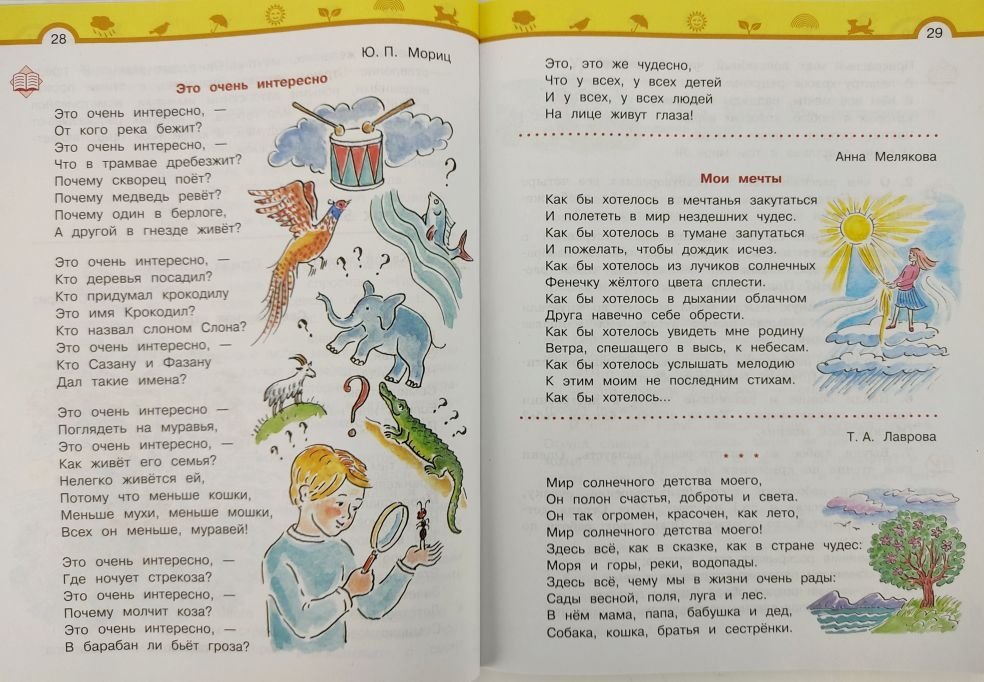 28
Ю. П. Мориц
Это очень интересно
Это очень интересно, —
От кого река бежит?
Это очень интересно, —
Что в трамвае дребезжит?
Почему скворец поёт?
Почему медведь ревёт?
Почему один в берлоге,
А другой в гнезде живёт?
Это очень интересно, —
Кто деревья посадил?
Кто придумал крокодилу
Это имя Крокодил?
Кто назвал слоном Слона?
Это очень интересно, —
Кто Сазану и Фазану
Дал такие имена?
Это очень интересно —
Поглядеть на муравья,
Это очень интересно, —
Как живёт его семья?
Нелегко живётся ей,
Потому что меньше кошки,
Меньше мухи, меньше мошки,
Всех он меньше, муравей!
Это очень интересно, —
Где ночует стрекоза?
Это очень интересно, —
Почему молчит коза?
Это очень интересно, —
В барабан ли бьёт гроза?
29
Это, это же чудесно,
Что у всех, у всех детей
И у всех, у всех людей
На лице живут глаза!
Анна Мелякова
Мои мечты
Как бы хотелось в мечтанья закутаться
И полететь в мир нездешних чудес.
Как бы хотелось в тумане запутаться
И пожелать, чтобы дождик исчез.
Как бы хотелось из лучиков солнечных
Фенечку жёлтого цвета сплести.
Как бы хотелось в дыхании облачном
Друга навечно себе обрести.
Как бы хотелось увидеть мне родину
Ветра, спешащего в высь, к небесам.
Как бы хотелось услышать мелодию
К этим моим не последним стихам.
Как бы хотелось...
Т. А. Лаврова
* * *
Мир солнечного детства моего,
Он полон счастья, доброты и света.
Он так огромен, красочен, как лето,
Мир солнечного детства моего!
Здесь всё, как в сказке, как в стране чудес:
Моря и горы, реки, водопады.
Здесь всё, чему мы в жизни очень рады:
Сады весной, поля, луга и лес.
В нём мама, папа, бабушка и дед,
Собака, кошка, братья и сестрёнки.